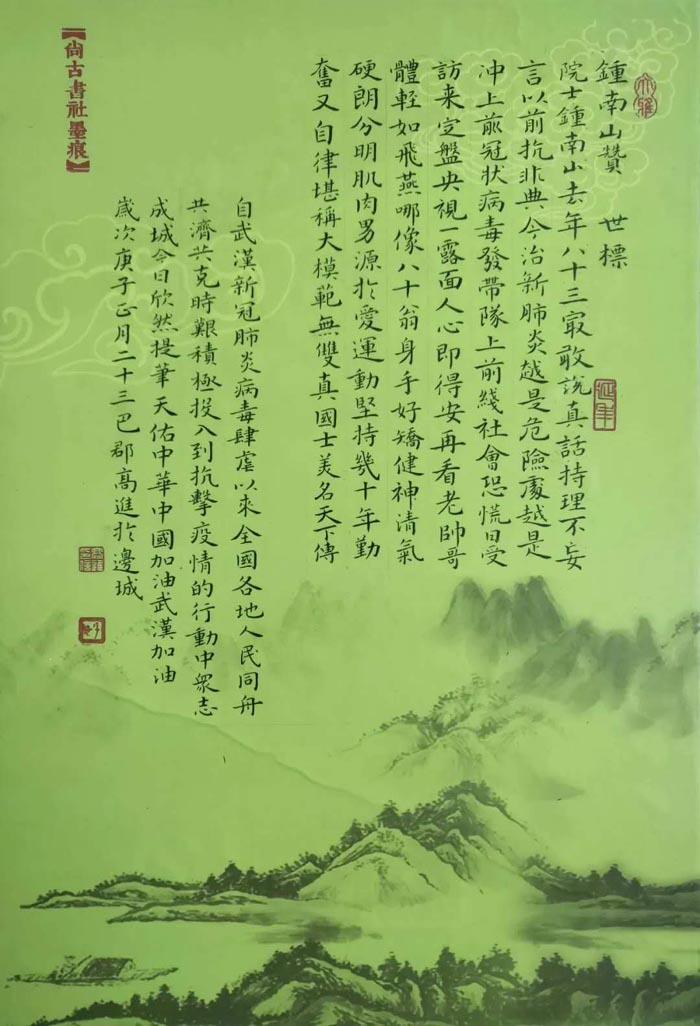 鍾南山贊 世標
院士鍾南山去年八十三最敢說真話持理不妄
言以前抗非典今治新肺炎越是危險處越是
沖上前冠狀病毒發帶隊上前綫社會恐慌日受
訪来定盤央視一露面人心即得安再看老帥哥
體輕如飛燕哪像八十翁身手好矯健神清氣
硬朗分明肌肉男源於愛運動堅持幾十年勤
奮又自律堪稱大模範無雙真國士美名天下傳
自武漢新冠肺炎病毒肆虐以來全國各地人民同舟
共濟共克時艱積極投入到抗擊疫情的行動中衆志
成城今日欣然提筆天佑中華中國加油武漢加油
歲次庚子正月二十三巴郡高進於邊城
【尚古書社墨痕】
延年